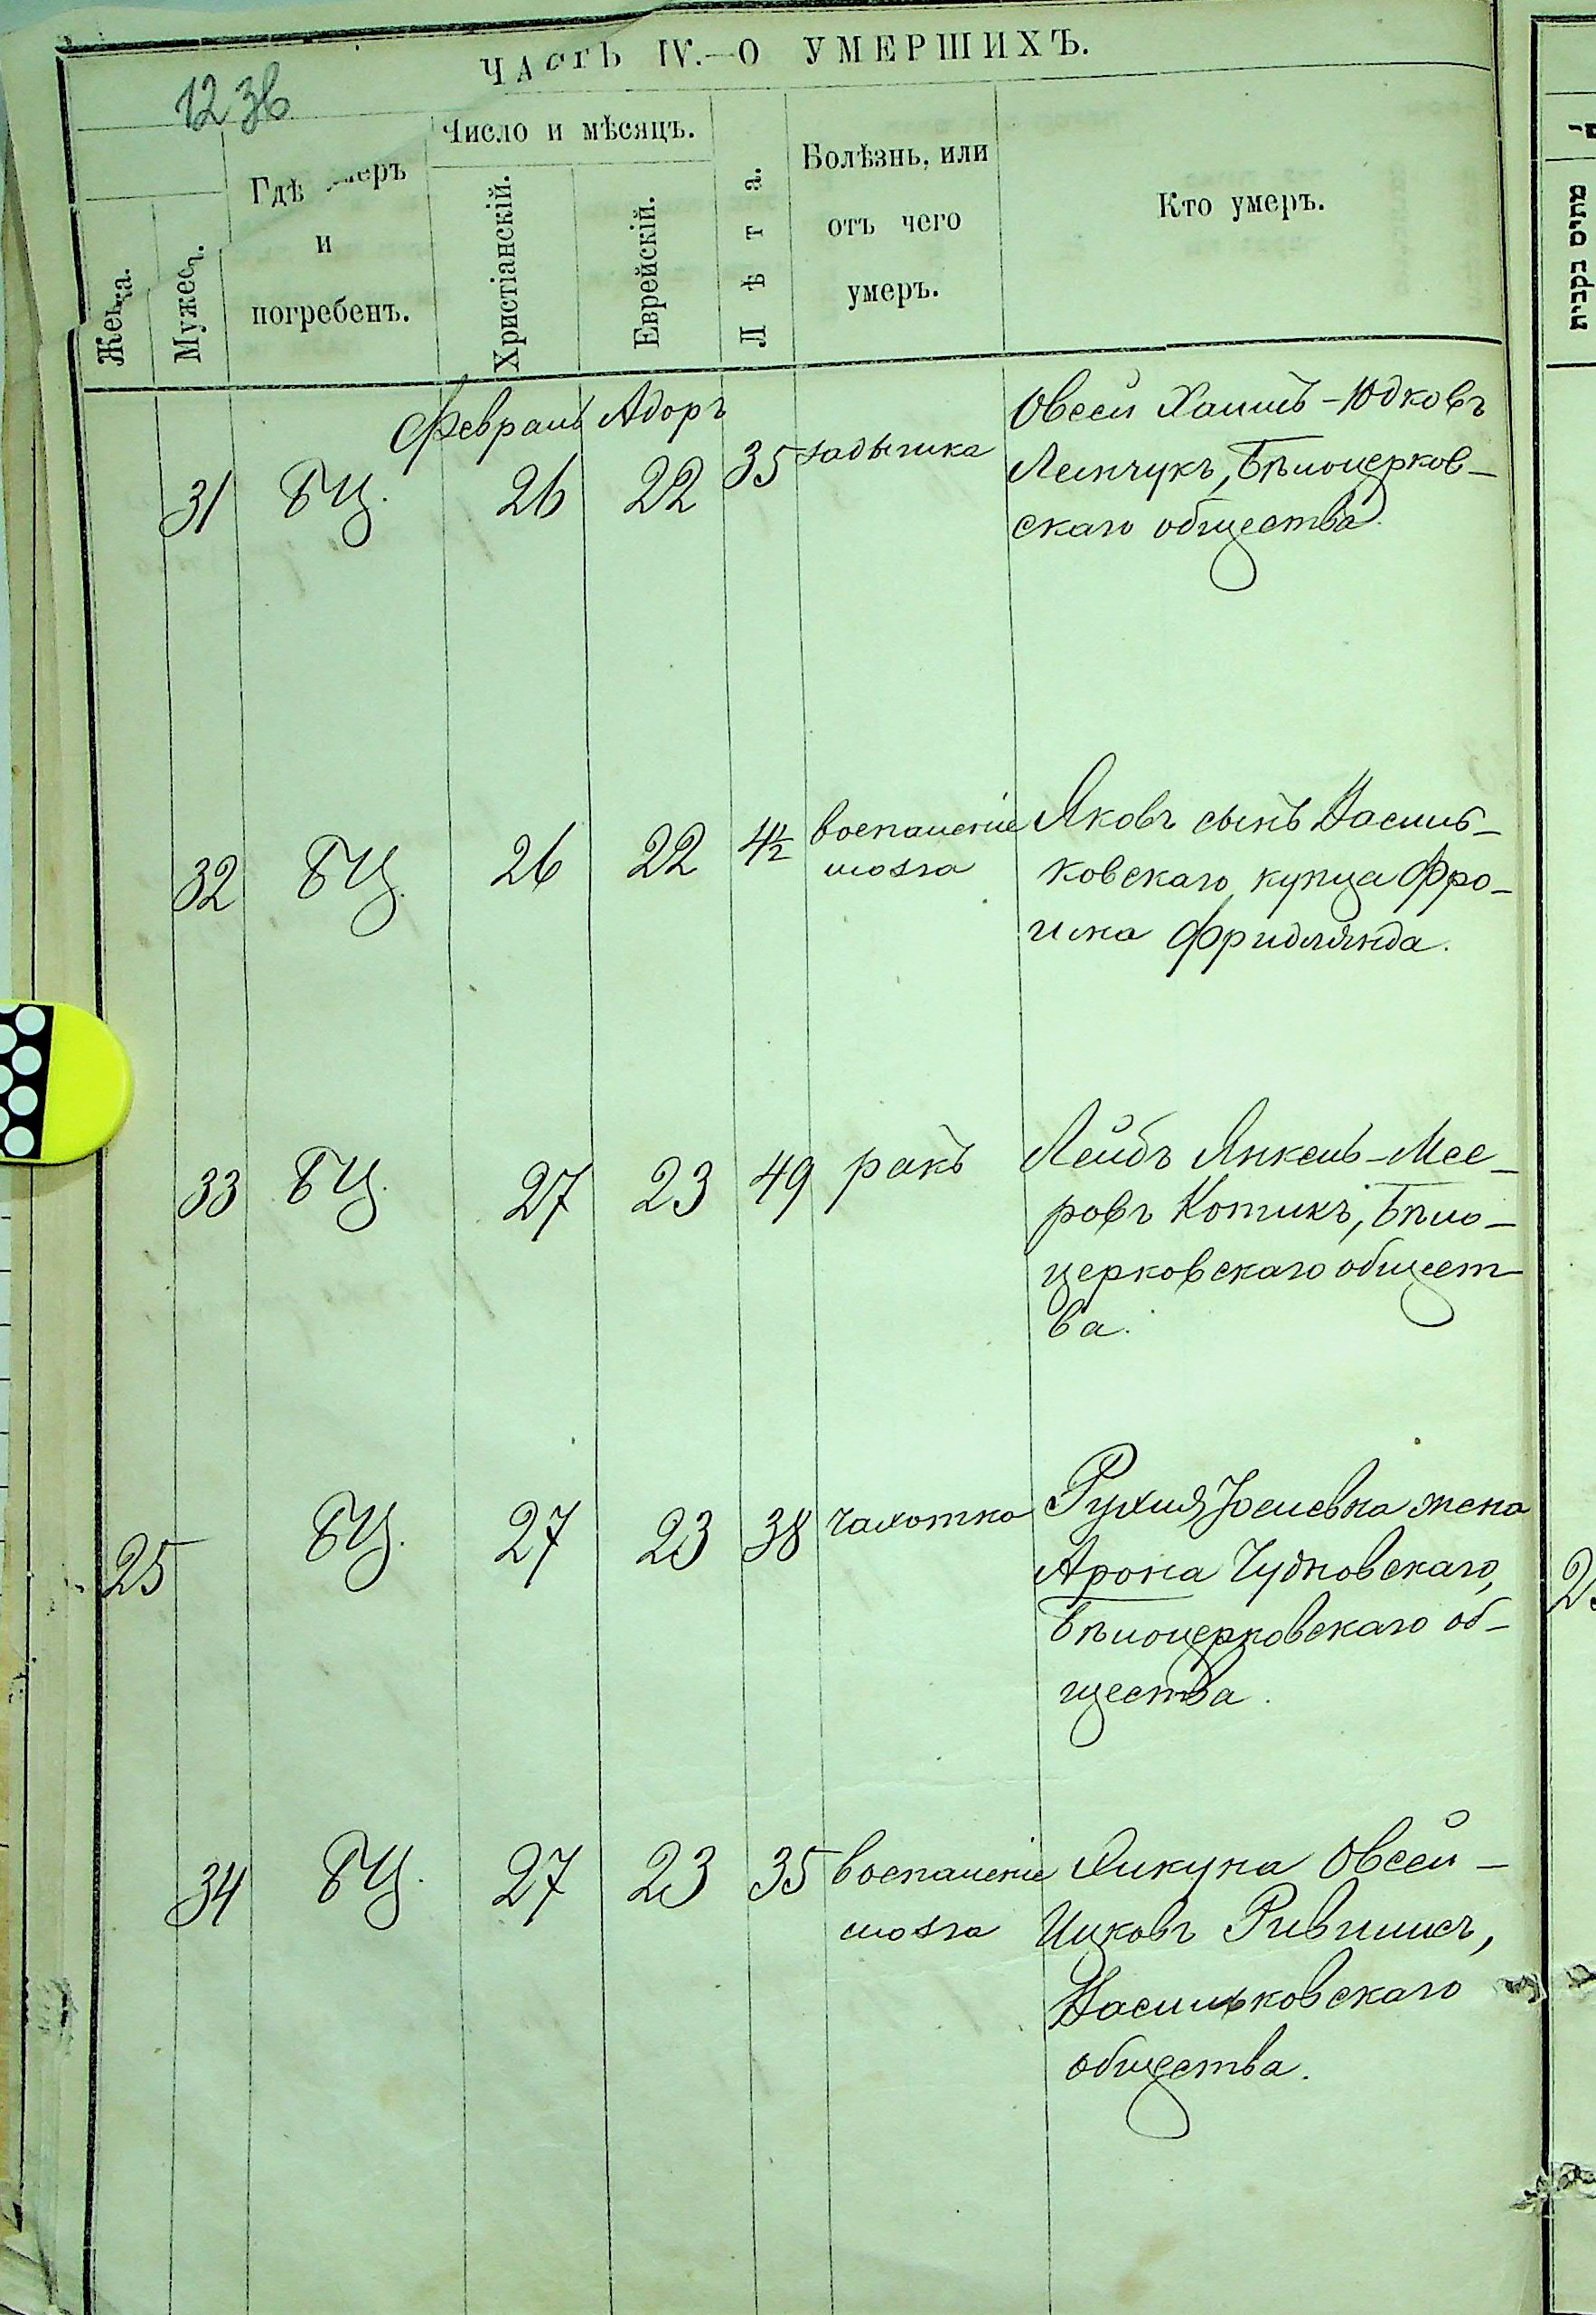 ЧАСТЬ IV.—О УМЕРШИХЪ.
1236
Женск.
Мужеск.
Гдѣ умеръ
и
погребенъ.
Число и мѣсяцъ.
Христіанскій.
Еврейскій.
Лѣта.
Болѣзнь, или
отъ чего
умеръ.
Кто умеръ.
מתים נקבות
Февраль Адоръ
31 БЦ. 26 22 35 задышка
Овсей Хаимъ-Юдковъ
Лемчукъ, Бѣлоцерков-
скаго общества.
32 БЦ. 26 22 4½ воспаленіе
мозга
Яковъ сынъ Василь-
ковскаго купца Фро-
има Фридлянда.
33 БЦ. 27 23 49 ракъ
Лейбъ Янкель-Мее-
ровъ Котикъ, Бѣло-
церковскаго общест-
ва.
25 БЦ. 27 23 38 чахотка
Рухля жена
Арона Чудновскаго,
Бѣлоцерковскаго об-
щества.
34 БЦ. 27 23 35 воспаленіе
мозга
Овсей-
Ицковъ
Васильковскаго
общества.